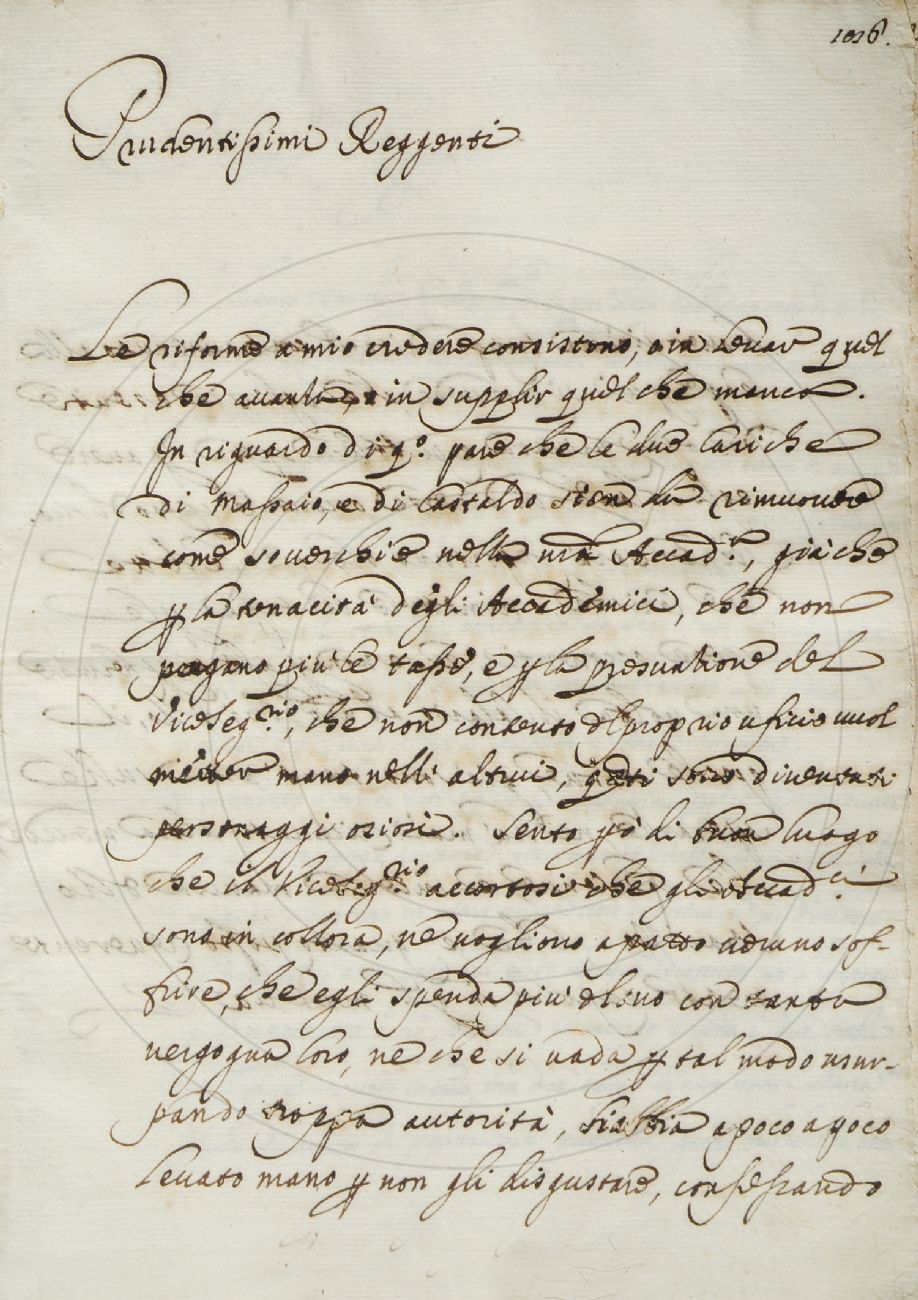 1016.
Prudentissimi Reggenti
Le riforme a mio credere consistono, o in levar quel
che avanza, o in supplir quel che manca.
In riguardo di qo. pare che le due cariche
di Massaio, e di Castaldo sien da rimuovere
come soverchie nella nra Accad.a, già che
p la tenacità degli Accademici, che non
pagano più le tasse, e p la
Viceseg.rio, che non contento del proprio uficio vuol
metter mano nelli altrui, qsti sono diventati
personaggi oziosi. Sento pò di buon luogo
che il Viceseg.rio accortosi che gli Accad.ci
sono in collora, ne vogliono a patto veruno sof-
frire, che egli spenda più del suo con tanta
vergogna loro, ne che si vada p tal modo usur-
pando troppa autorità, si abbia a poco a poco
levato mano p non gli disgustare, confessando